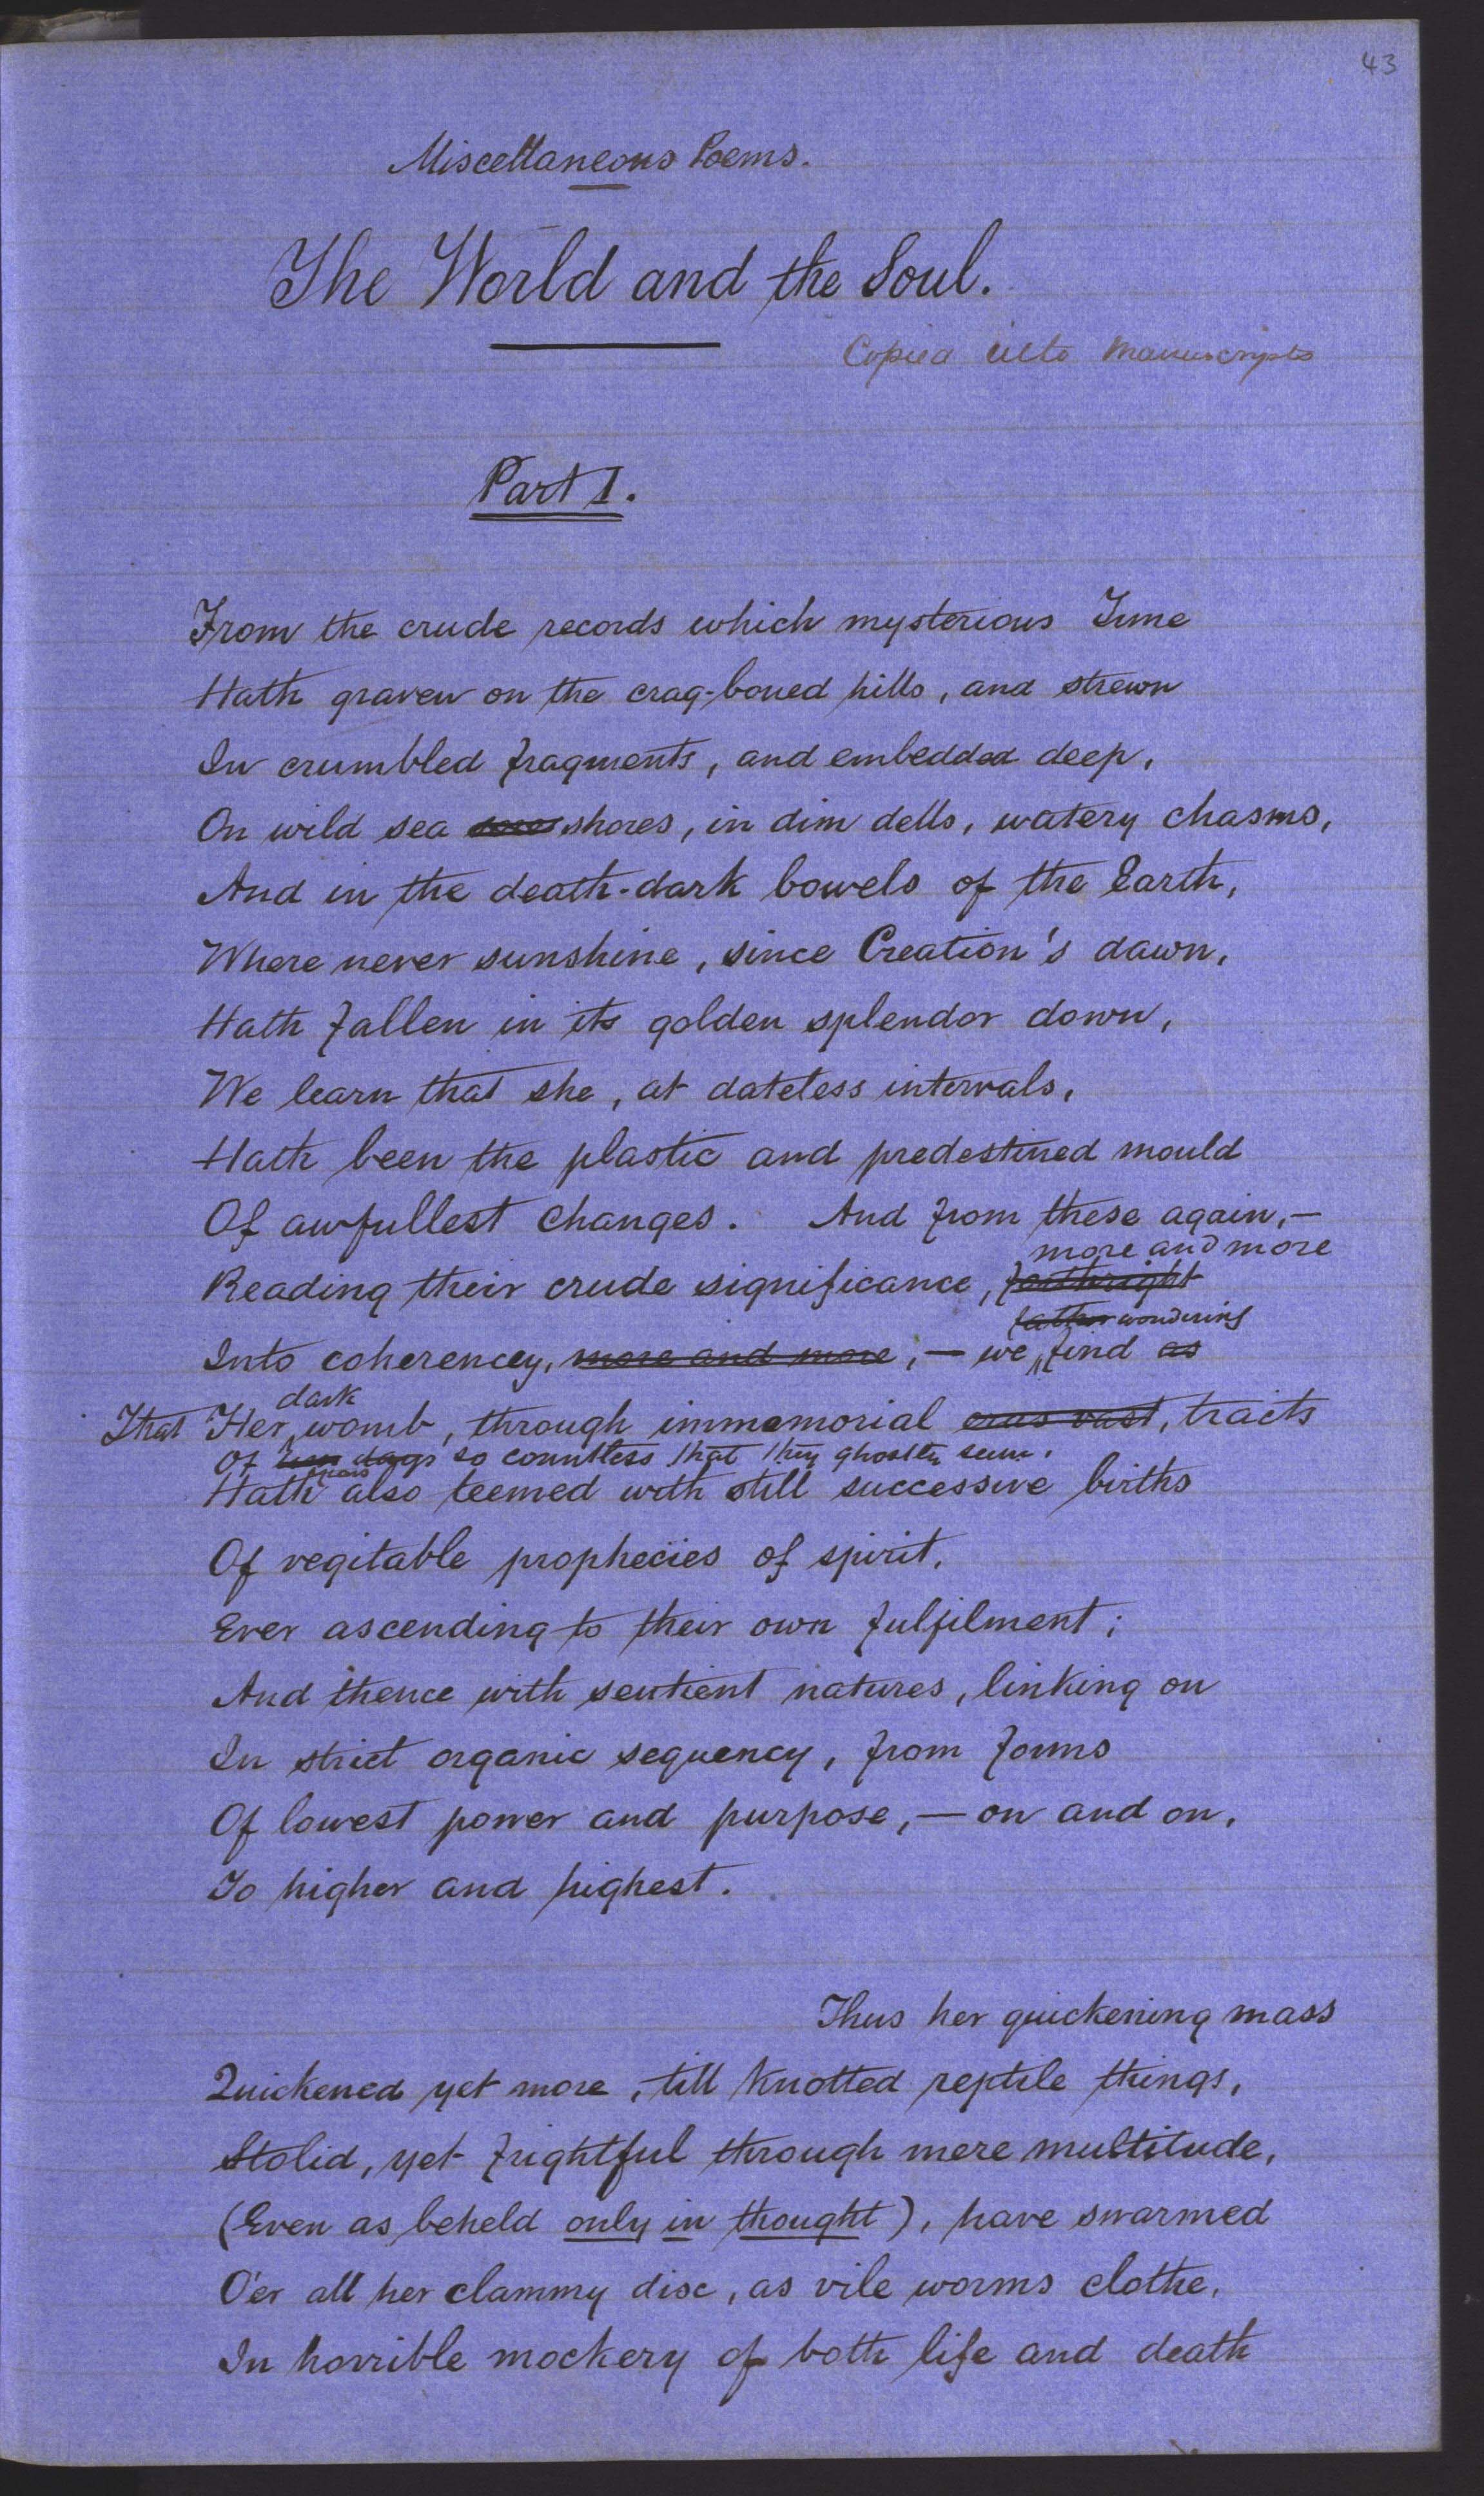 43
Miscellaneous Poems.
The World and the Soul.
Copied into Manuscripts
Part I.
From the crude records which mysterious Time
Hath graven on the crag-boned hills, and strewn
In crumbled fragments, and embedded deep,
On wild sea shores, in dim dells, watery chasms,
And in the death-dark bowels of the Earth,
Where never sunshine, since Creation's dawn,
Hath fallen in its golden splendor down,
We learn that she, at dateless intervals,
Hath been the plastic and predestined mould
Of awfullest changes. And from these again,—
more and more
Reading their crude significance, forthright
father wondering
Into coherency, more and more,— we find as
dark
That Her womb, through immemorial eras vast, tracts
Of days so countless that they ghostly seem,
years
Hath also teemed with still successive births
Of vegitable prophecies of spirit,
Ever ascending to their own fulfilment;
And thence with sentient natures, linking on
In strict organic sequency, from forms
Of lowest power and purpose,— on and on,
To higher and highest.
Thus her quickening mass
Quickened yet more, till knotted reptile things,
Stolid, yet frightful through mere multitude,
(Even as beheld only in thought), have swarmed
O'er all her clammy disc, as vile worms clothe,
In horrible mockery of both life and death